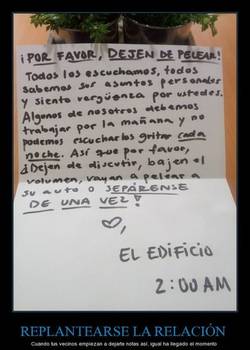 ¡POR FAVOR, DEJEN DE PELEAR!
Todos los escuchamos, todos
sabemos sus asuntos personales
y siento vergüenza por ustedes.
Algunos de nosotros debemos
trabajar por la mañana y no
podemos escucharlos gritar cada
noche. Así que por favor,
¿Dejen de discutir, bajen el
volumen, vayan a pelear a
su auto o SEPÁRENSE
DE UNA VEZ!
♡,
EL EDIFICIO
2:00AM
REPLANTEARSE LA RELACIÓN
Cuando tus vecinos empiezan a dejarte notas así, igual ha llegado el momento